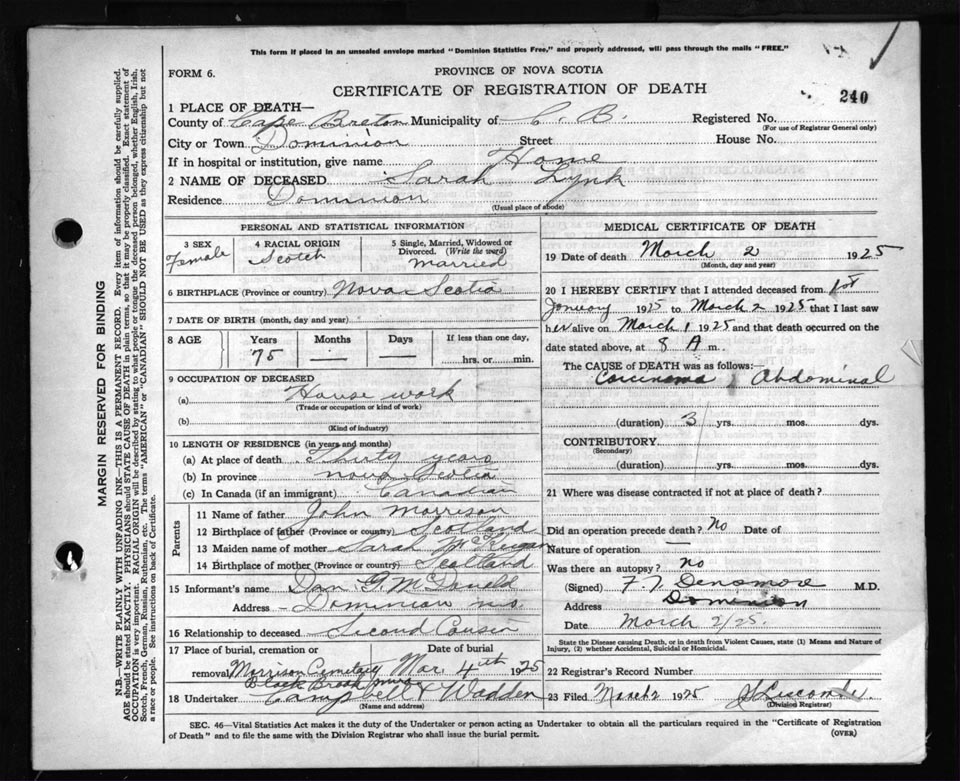 This form if placed in an unsealed envelope marked "Dominion Statistics Free," and properly addressed, will pass through the mails "FREE."
FORM 6.
PROVINCE OF NOVA SCOTIA
CERTIFICATE OF REGISTRATION OF DEATH
240
1 PLACE OF DEATH—
County of Cape Breton Municipality of C. B. Registered No.
(For use of Registrar General only)
City or Town Dominion Street House No.
If in hospital or institution, give name Home
2 NAME OF DECEASED Sarah Lynk
Residence Dominion
(Usual place of abode)
MARGIN RESERVED FOR BINDING
N.B.—WRITE PLAINLY WITH UNFADING INK—THIS IS A PERMANENT RECORD. Every item of information should be carefully supplied.
AGE should be stated EXACTLY. PHYSICIANS should STATE CAUSE OF DEATH in plain terms, so that it may be properly classified. Exact statement of
OCCUPATION is very important. RACIAL ORIGIN will be described by stating to what people or tongue the deceased person belonged, whether English, Irish,
Scotch, French, German, Russian, Ruthenian, etc. The terms "AMERICAN" or "CANADIAN" SHOULD NOT BE USED as they express citizenship but not
a race or people. See instructions on back of Certificate.
PERSONAL AND STATISTICAL INFORMATION
3 SEX
Female
4 RACIAL ORIGIN
Scotch
5 Single, Married, Widowed or
Divorced. (Write the word)
Married
6 BIRTHPLACE (Province or country) Nova Scotia
7 DATE OF BIRTH (month, day and year)
8 AGE Years Months Days If less than one day,
75 — — hrs. or min.
9 OCCUPATION OF DECEASED
(a) House work
(Trade or occupation or kind of work)
(b)
(Kind of industry)
10 LENGTH OF RESIDENCE (in years and months)
(a) At place of death Thirty years
(b) In province nova Scotia
(c) In Canada (if an immigrant) Canadian
Parents
11 Name of father John Morrison
12 Birthplace of father (Province or country) Scotland
13 Maiden name of mother Sarah
14 Birthplace of mother (Province or country) Scotland
15 Informant's name Dan G. McDonald
Address - Dominion
16 Relationship to deceased Second Cousin
17 Place of burial, cremation or Date of burial
removal Morrison Cemetary Mar. 4th 1925
Black Brook
18 Undertaker Campbell & Wadden
(Name and address)
MEDICAL CERTIFICATE OF DEATH
19 Date of death March 2 1925
(Month, day and year)
20 I HEREBY CERTIFY that I attended deceased from 1st
January 1925 to March 2 1925 that I last saw
her alive on March 1 1925 and that death occurred on
date stated above, at 8 A m.
The CAUSE of DEATH was as follows:
Carcinoma, Abdominal
(duration) 3 yrs. mos. dys.
CONTRIBUTORY
(Secondary)
(duration) yrs. mos. dys.
21 Where was disease contracted if not at place of death?
Did an operation precede death? No Date of
Nature of operation —
Was there an autopsy? No
(Signed) F. T. Densmore M.D.
Address Dominion
Date March 2/25.
State the Disease causing Death, or in death from Violent Causes, state (1) Means and Nature of
Injury, (2) whether Accidental, Suicidal or Homicidal.
22 Registrar's Record Number
23 Filed March 2 1925 Liscombe.
(Division Registrar)
SEC. 46—Vital Statistics Act makes it the duty of the Undertaker or person acting as Undertaker to obtain all the particulars required in the "Certificate of Registration
of Death" and to file the same with the Division Registrar who shall issue the burial permit. (OVER)